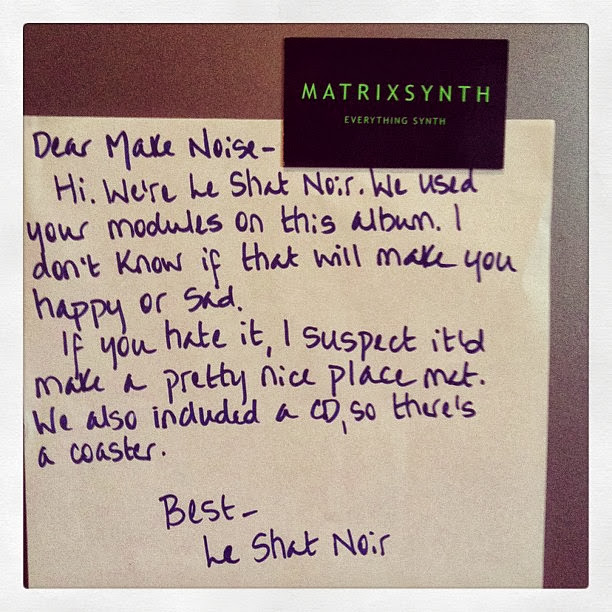 MATRIXSYNTH
EVERYTHING SYNTH
Dear Make Noise-
Hi. We're Le Shat Noir. We used
your modules on this album. I
don't know if that will make you
happy or sad.
If you hate it, I suspect it'd
make a pretty nice place met.
We also included a CD, so there's
a coaster.
Best-
Le Shat Noir